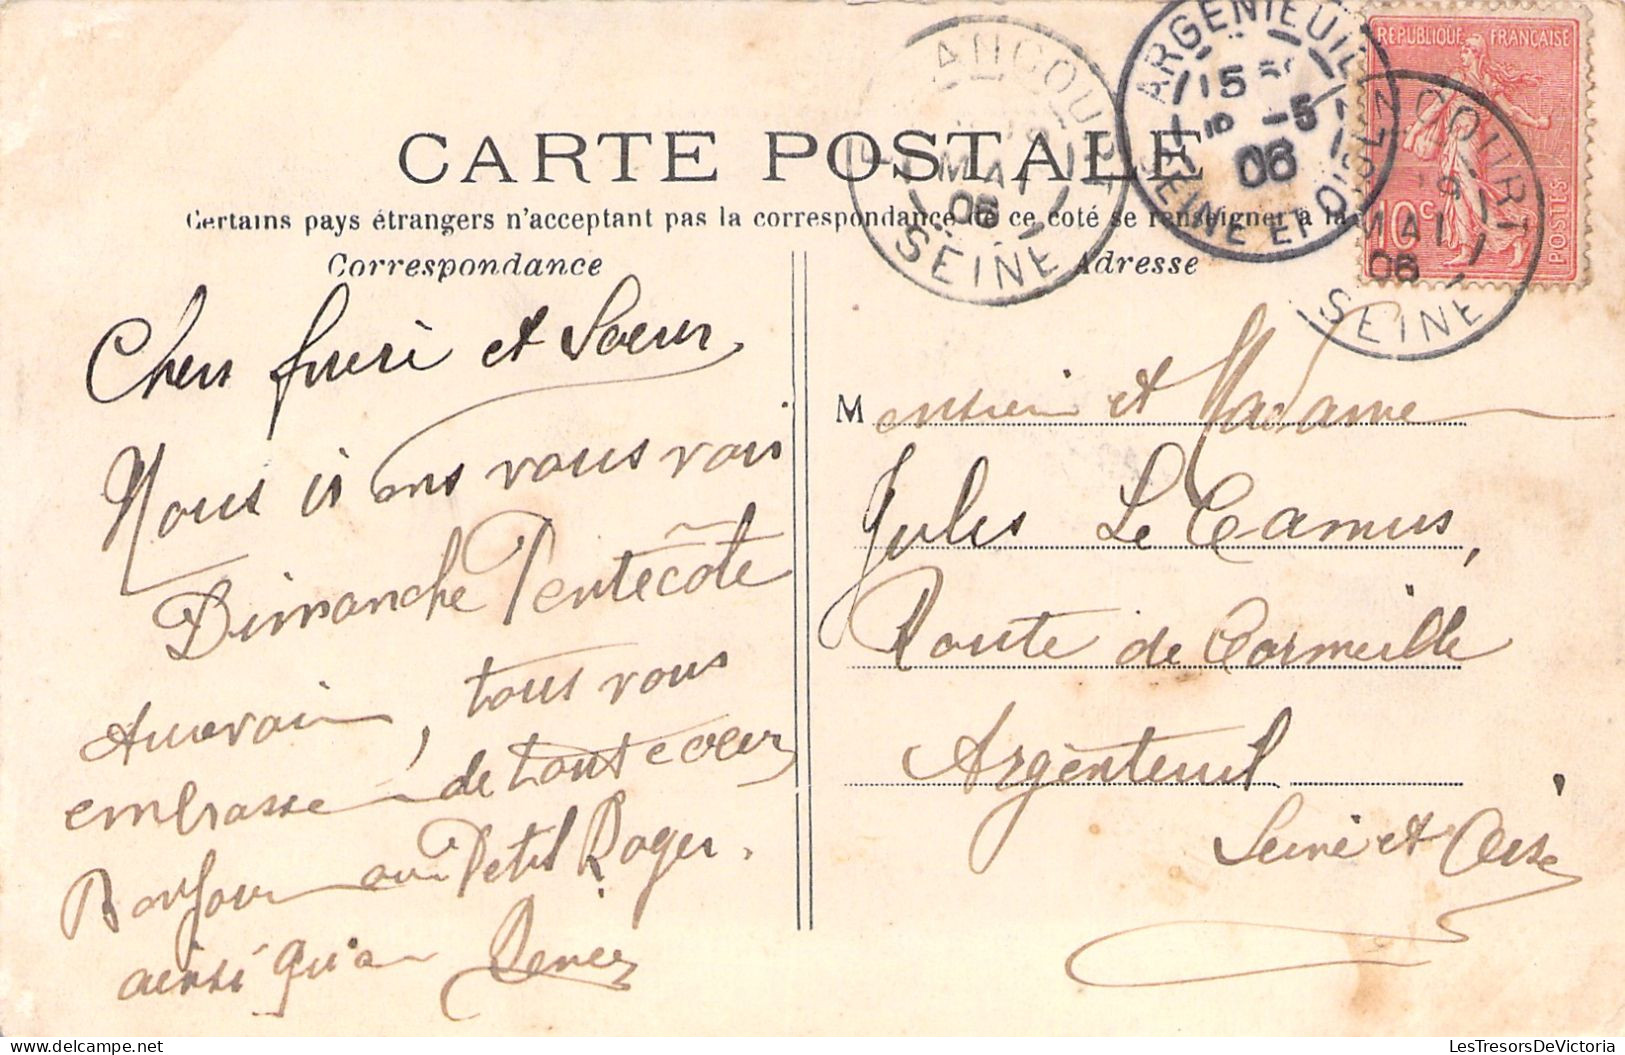 CARTE POSTALE
Certains pays étrangers n'acceptant pas la correspondance de ce coté se renseigner à la
Correspondance
Adresse
Chers freri et Soeur,
Nous irons vous voir
Dimanche Pentecôte
tous vous
embrasse de tout coeur
Bonjour au Petit Roger.
ainsi qu'a Renée
Monsieur et Madame
Jules Le Camus,
Route de Cormeille
Argenteuil
Seine et Oise
RÉPUBLIQUE FRANÇAISE
10c
POSTES
ARGENTEUIL
15
-5
06
SEINE ET OISE
MAI
06
SEINE
MAI
06
SEINE
www.LesTresorsDeVictoria.com
LesTresorsDeVictoria.com